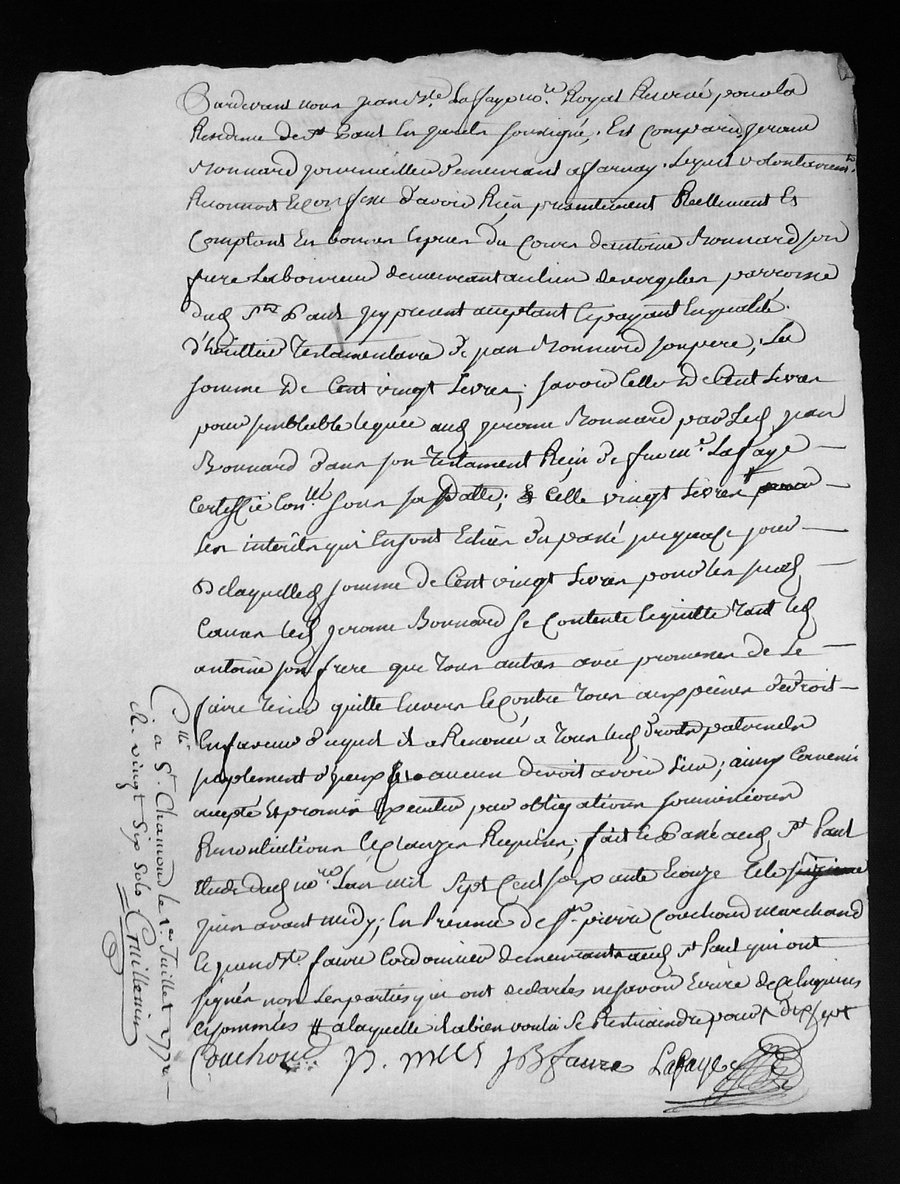 Pardevant nous jean Bte Lafaye no.re Royal Reservé pour la
Residence de st Paul En jarets soussigné, Est comparu, jerome
Bonnard journeillier demeurant a farnay. Lequel volontairemt
Reconnoit & confesse d'avoir Reçu presentement Reellement Et
Comptant En bonnes Especes du Cours d'antoine Bonnard son
frere Laboureur demeurant au lieu de parroisse
dud st Paul icy present acceptant & payant En qualité
d'heritier Testamentaire de jean Bonnard son pere, La
somme de Cent vingt Livres; savoir Celle de Cent Livres
pour semblable leguée aud jerome Bonnard par Led jean
Bonnard dans son Testament Reçu de feu me. Lafaye
Certiffié Conllé sous sa datte; & Celle vingt Livres #
Les interets qui En sont Echus du passé jusqu'a ce jour
De laquelle somme de Cent vingt Livres pour les susd
Causes Led jerome Bonnard se Contente & quitte Tant led
antoine son frere que Tous autres avec promesses de Le
faire Tenir quitte Envers & contre Tous aux peines de droit
En faveur duquel il a Renoncé a Tous led droits paternels
suplement d'yceux si aucun devoit avoir Lieu; ainsy Convenu
accepté Et promis Executer par obligations soumissions
Renontiations & Clauses Requises, fait & Passé aud st Paul
Etude dud no.re Lan mil sept Cent soixante & onze & le
juin avant midy; En Presence de sr. pierre Couchoud marchand
& jean Bte faure Cordonnier demeurants aud st Paul qui ont
signés non Les parties qui ont declarées ne savoir Ecrire de Ce Enquises
& sommées # a laquelle il a bien voulu se Restraindre pour
Couchoud P. JBfaure Lafaye
Collé
a St. Chamond le 1er Juillet 1771
R. vingt six sols Guillemin